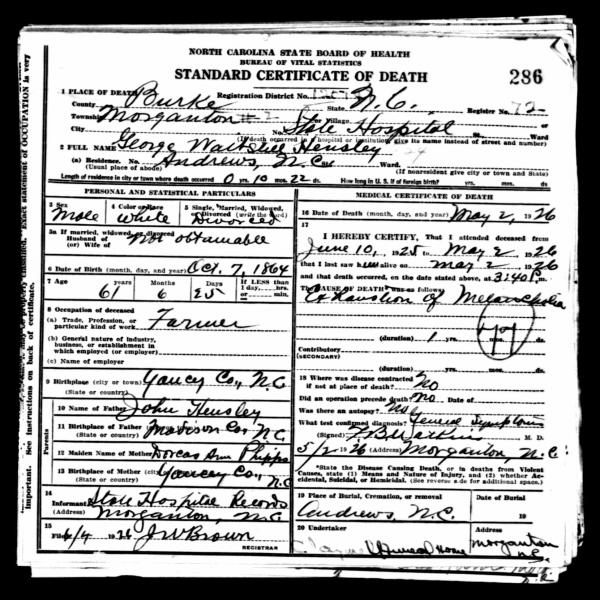 NORTH CAROLINA STATE BOARD OF HEALTH
BUREAU OF VITAL STATISTICS
STANDARD CERTIFICATE OF DEATH
286
1 PLACE OF DEATH
Registration District No.
County Burke State N.C. Register No. 72
Township Morganton #2 or Village
City State Hospital Ward
(If death occurred in a hospital or institution, give its name instead of street and number)
2 FULL NAME George Waitstill Hensley
(a) Residence. No. Andrews, N.C. St. Ward.
(Usual place of abode) (If nonresident give city or town and State)
Length of residence in city or town where death occurred 0 yrs. 10 mos. 22 ds. How long in U. S. if of foreign birth? yrs. mos. ds.
PERSONAL AND STATISTICAL PARTICULARS
3 Sex 4 Color or Race 5 Single, Married, Widowed, or Divorced (write the word)
Male White Divorced
5a If married, widowed, or divorced
Husband of
(or) Wife of Not obtainable
6 Date of Birth (month, day, and year) Oct. 7, 1864
7 Age Years Months Days If LESS than 1 day, hrs. or min.
61 6 25
8 Occupation of deceased
(a) Trade, Profession, or particular kind of work Farmer
(b) General nature of industry, business, or establishment in which employed (or employer)
(c) Name of employer
9 Birthplace (city or town) Yancy Co., N.C.
(State or country)
Parents
10 Name of Father John Hensley
11 Birthplace of Father Madison Co. N.C.
(State or country)
12 Maiden Name of Mother Dorcas Ann Phipps
13 Birthplace of Mother Yancey Co., N.C.
(State or country)
14
Informant State Hospital Records
(Address) Morganton, N.C.
15
Filed 6/4 1926 J W Brown
REGISTRAR
MEDICAL CERTIFICATE OF DEATH
16 Date of Death (month, day, and year) May 2, 1926
17
I HEREBY CERTIFY, That I attended deceased from
June 10, 1925 to May 2 1926
that I last saw him alive on May 2 1926
and that death occurred, on the date stated above, at 3:40 P. m.
The CAUSE OF DEATH was as follows:
Exhaustion of Melancholia
(duration) 1 yrs. mos. ds.
Contributory
(SECONDARY)
(duration) yrs. mos. ds.
18 Where was disease contracted
if not at place of death? No
Did an operation precede death? No Date of
Was there an autopsy? No
What test confirmed diagnosis? General Symptoms
(Signed) M. D.
5/2 1926 (Address) Morganton, N.C.
*State the Disease Causing Death, or in deaths from Violent Causes, state (1) Means and Nature of Injury, and (2) whether Accidental, Suicidal, or Homicidal. (See reverse side for additional space.)
19 Place of Burial, Cremation, or removal Date of Burial
Andrews, N.C. 19
20 Undertaker Address
Funeral Home Morganton N.C.
important. See instructions on back of certificate.
Exact statement of OCCUPATION is very